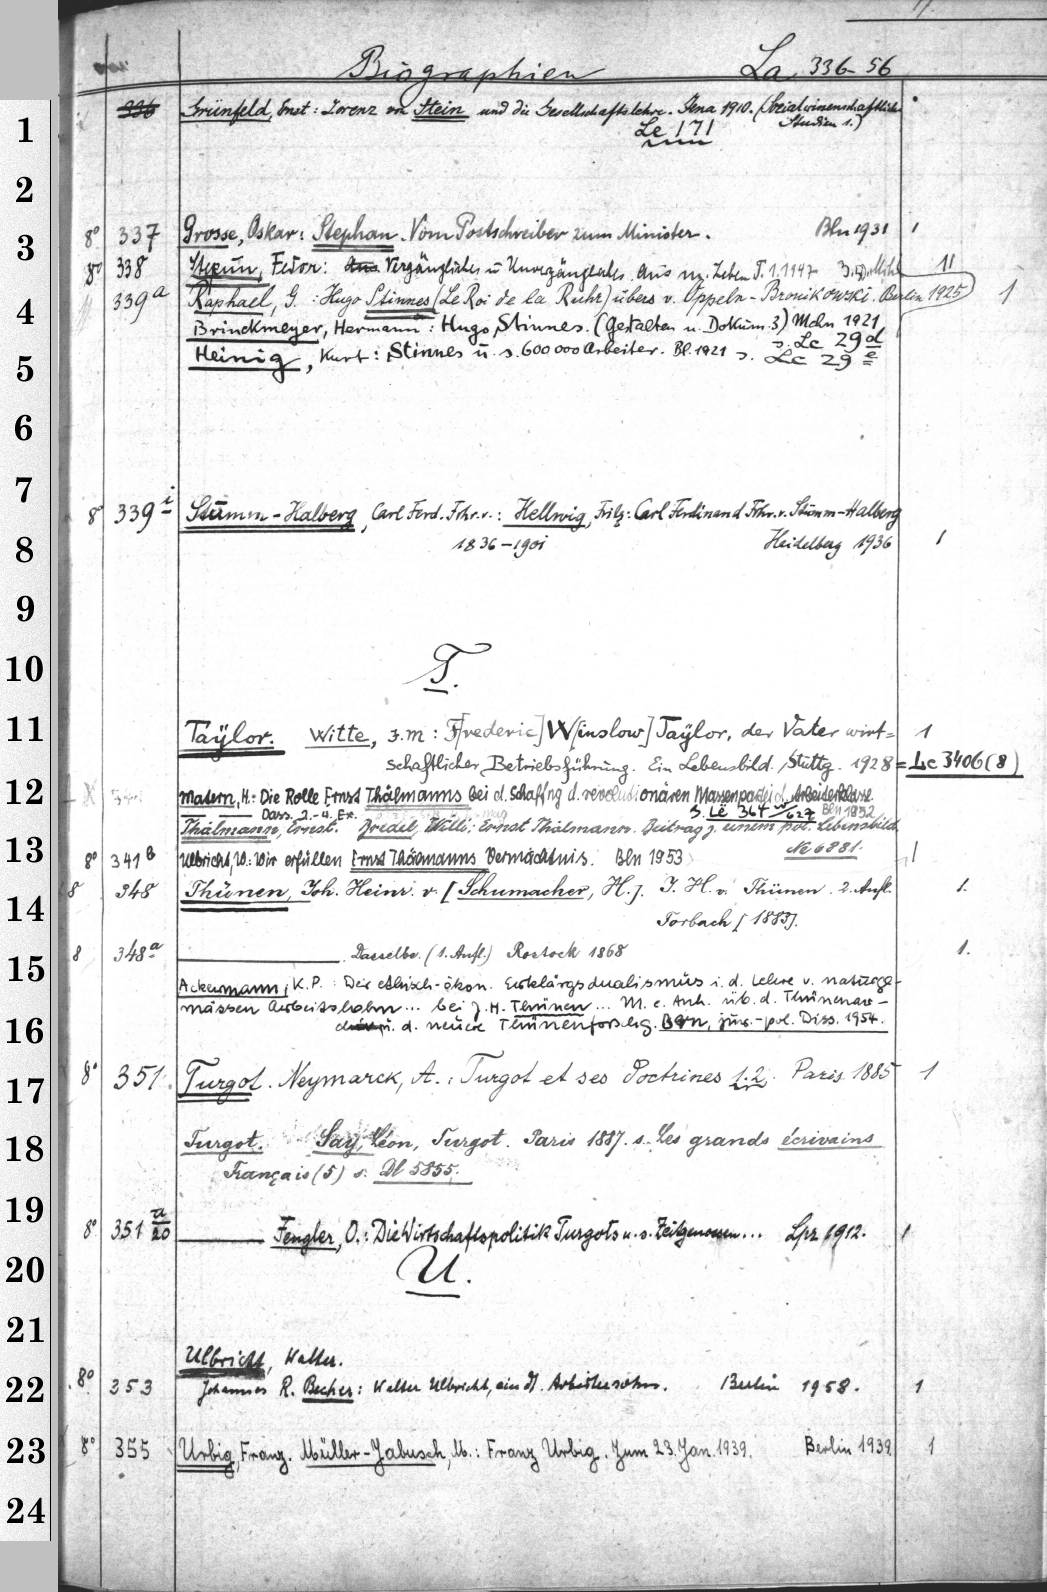 Biographien La 336-56
336 Grünfeld, Ernst: Lorenz von Stein und die Gesellschaftslehre. Jena 1910. (Sozialwissenschaftliche
Studien 1.)
Le 171
1
2
8° 337 Grosse, Oskar: Stephan. Vom Postschreiber zum Minister. Bln 1931 1
3
8° 338 Stepun, Fedor: Vergängliches u Unvergängliches. Aus m. Leben T. 1. 1947 11
339a Raphael, G.: Hugo Stinnes (Le Roi de la Ruhr) übers v. Oppeln-Bronikowski. Berlin 1925 1
4
Brinckmeyer, Hermann: Hugo Stinnes. (Gestalten u. Dokum. 3) Mchn 1921
s. Lc 29 d
Heinig, Kurt: Stinnes u. s. 600 000 Arbeiter. Bl. 1921 s. Lc 29 e
5
6
7
8° 339 i Stumm-Halberg, Carl Ferd. Frhr. v.: Hellwig, Fritz: Carl Ferdinand Frhr. v. Stumm-Halberg
1836-1901 Heidelberg 1936 1
8
9
10
T.
11
Taylor. Witte, J. M: F[rederic] W[inslow] Taylor, der Vater wirt= 1
schaftlicher Betriebsführung. Ein Lebensbild. Stuttg. 1928 = Lc 3406 (8)
12
Matern, H.: Die Rolle Ernst Thälmanns bei d. Schaffng d. revolutionären Massenpartei d. Arbeiterklasse
Dass. 2. u. Ex. s. Le 364 Bln 1952
Thälmann, Ernst. Bredel, Willi: Ernst Thälmann. Beitrag z. einem pol. Lebensbild
Ne 6881.
13
8° 341b Ulbricht, W: Wir erfüllen Ernst Thälmanns Vermächtnis. Bln 1953 1
8 348 Thünen, Joh. Heinr. v. [Schumacher, H.]. J. H. v. Thünen. 2. Aufl. 1.
14
[1883].
8 348a Dasselbe. (1. Aufl.) Rostock 1868 1.
15
Ackermann, K. P.: Der ethisch-ökon. Erklärgsdualismus i. d. Lehre v. naturge-
mässen Arbeitslohn... bei J. H. Thünen... M. e. Anh. üb. d. Thünenar-
16
u. d. neuere Thünenforschg. Bonn, jur.-pol. Diss. 1954.
8° 351. Turgot. Neymarck, A.: Turgot et ses Doctrines 1. 2. Paris 1885 1
17
18
Turgot. Say, Léon, Turgot. Paris 1887. s. Les grands écrivains
Français (5) s. Dl 5855.
19
8° 351 a/20 Fengler, O.: Die Wirtschaftspolitik Turgots u. s. Zeitgenossen... Lpz 1912. 1
20
U.
21
Ulbricht, Walter.
22
8° 353 Johannes R. Becher: Walter Ulbricht, ein dt. Arbeitersohn. Berlin 1958. 1
23
8° 355 Urbig, Franz. Müller-Jabusch, M.: Franz Urbig. Zum 23. Jan. 1939. Berlin 1939 1
24